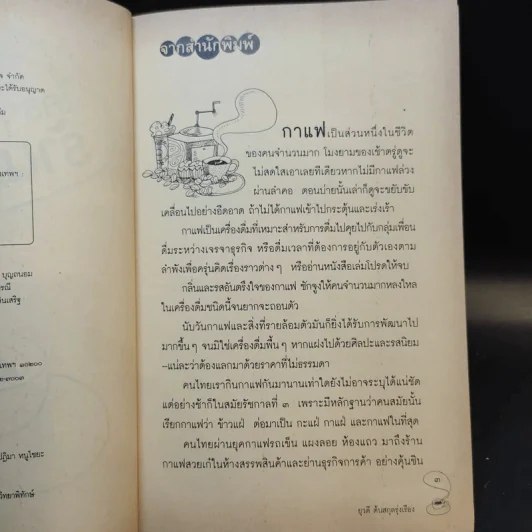 จ จำกัด
ะได้รับอนุญาต
ทพฯ
บุญถนอม
รณี
นเสริฐ
เทพฯ ๑๐๒๐๐
๒-๓๐๐๓
ปฏิมา หนูไชยะ
วิทยาพิทักษ์
จากสำนักพิมพ์
กาแฟเป็นส่วนหนึ่งในชีวิต
ของคนจำนวนมาก โมงยามของเช้าตรู่ดูจะ
ไม่สดใสเอาเลยทีเดียวหากไม่มีกาแฟล่วง
ผ่านลำคอ ตอนบ่ายนั้นเล่าก็ดูจะขยับขับ
เคลื่อนไปอย่างอืดอาด ถ้าไม่ได้กาแฟเข้าไปกระตุ้นและเร่งเร้า
กาแฟเป็นเครื่องดื่มที่เหมาะสำหรับการดื่มไปคุยไปกับกลุ่มเพื่อน
ดื่มระหว่างเจรจาธุรกิจ หรือดื่มเวลาที่ต้องการอยู่กับตัวเองตาม
ลำพังเพื่อครุ่นคิดเรื่องราวต่างๆ หรืออ่านหนังสือเล่มโปรดให้จบ
กลิ่นและรสอันตรึงใจของกาแฟ ชักจูงให้คนจำนวนมากหลงใหล
ในเครื่องดื่มชนิดนี้จนยากจะถอนตัว
นับวันกาแฟและสิ่งที่รายล้อมตัวมันก็ยิ่งได้รับการพัฒนาไป
มากขึ้นๆ จนมิใช่เครื่องดื่มพื้นๆ หากแฝงไปด้วยศิลปะและรสนิยม
–แน่ละว่าต้องแลกมาด้วยราคาที่ไม่ธรรมดา
คนไทยเรากินกาแฟกันมานานเท่าใดยังไม่อาจระบุได้แน่ชัด
แต่อย่างช้าก็ในสมัยรัชกาลที่ ๓ เพราะมีหลักฐานว่าคนสมัยนั้น
เรียกกาแฟว่า ข้าวแฝ่ ต่อมาเป็น กะแฝ่ กาแฝ่ และกาแฟในที่สุด
คนไทยผ่านยุคกาแฟรถเข็น แผงลอย ห้องแถว มาถึงร้าน
กาแฟสวยเก๋ในห้างสรรพสินค้าและย่านธุรกิจการค้า อย่างคุ้นชิน
๓
ยุวดี ต้นสกุลรุ่งเรือง